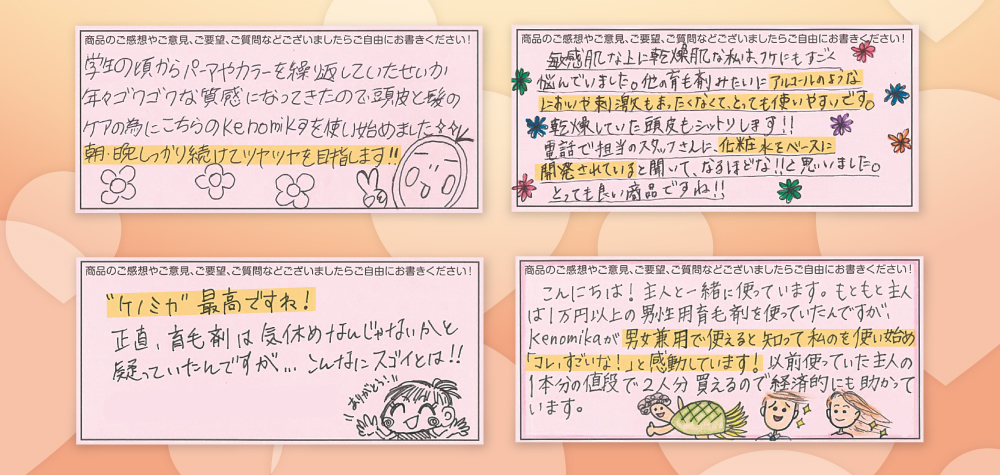 商品のご感想やご意見、ご要望、ご質問などございましたらご自由にお書きください！
学生の頃からパーマやカラーを繰り返していたせいか
年々ゴワゴワな質感になってきたので頭皮と髪の
ケアの為にこちらのkenomikaを使い始めました☆☆
朝・晩しっかり続けてツヤツヤを目指します!!
商品のご感想やご意見、ご要望、ご質問などございましたらご自由にお書きください！
敏感肌な上に乾燥肌な私は、フケにもすごく
悩んでいました。他の育毛剤みたいにアルコールのような
においや刺激もまったくなくて、とっても使いやすいです。
乾燥していた頭皮もシットリします!!
電話で担当のスタッフさんに、化粧水をベースに
開発されていると聞いて、なるほどな!!と思いました。
とっても良い商品ですね!!
商品のご感想やご意見、ご要望、ご質問などございましたらご自由にお書きください！
"ケノミカ"最高ですね!
正直、育毛剤は気休めなんじゃないか、と
疑っていたんですが… こんなにスゴイとは!!
ありがとう!
商品のご感想やご意見、ご要望、ご質問などございましたらご自由にお書きください！
こんにちは！主人と一緒に使っています。もともと主人
は1万円以上の男性用育毛剤を使っていたんですが、
Kenomikaが男女兼用で使えると知って私のを使い始め
「コレ、すごいな！」と感動しています！以前使っていた主人の
1本分の値段で2人分買えるので経済的にも助かって
います。